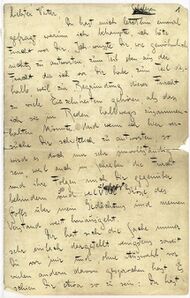 Liebster Vater,
Du hast mich letzthin einmal
gefragt, warum ich behaupte, ich hätte
Furcht vor Dir. Ich wusste Dir, wie gewöhnlich,
nichts zu antworten, zum Teil eben aus der
Furcht die ich vor Dir habe, zum Teil des-
halb weil zur Begründung dieser Furcht
zu viele Einzelheiten gehören, als dass
ich sie im Reden halbwegs zusammen-
halten könnte. Und wenn ich hier versuche
Dir schriftlich zu antworten, so
wird es doch nur sehr unvollständig
sein, weil auch im Schreiben die Furcht
und ihre Folgen mich Dir gegenüber
behindern und weil die Grösse des
Stoffs über mein Gedächtnis und meinen
Verstand weit hinausgeht.
Dir hat sich die Sache immer
sehr einfach dargestellt, wenigstens soweit
Du vor mir und, ohne Auswahl, vor
vielen andern davon gesprochen hast. Es
schien Dir etwa so zu sein: Du hast